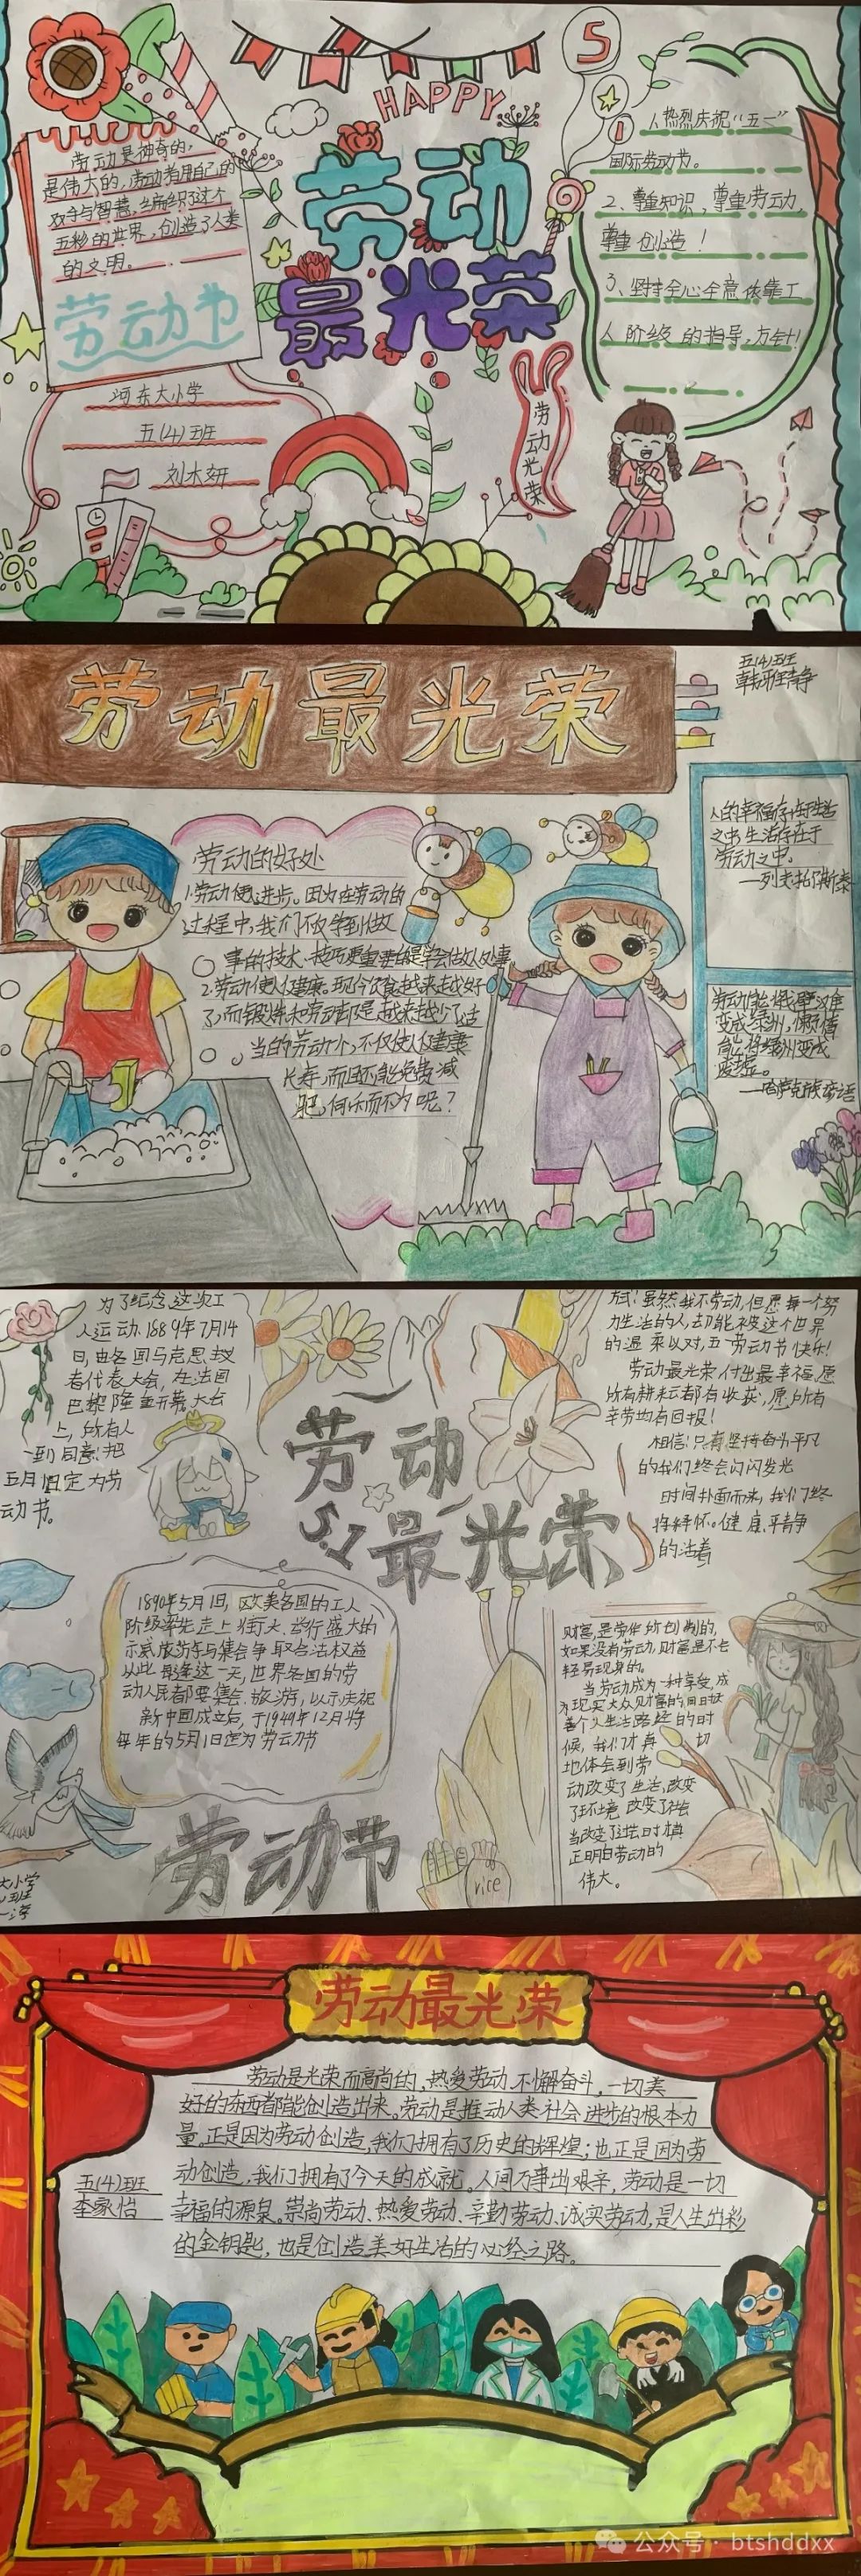 HAPPY
劳动
最光荣
5
1
劳动是神奇的，
是伟大的，劳动者用自己的
双手与智慧，编织了这个
五彩的世界，创造了人类
的文明。
劳动节
河东大小学
五(4)班
劳动光荣
人热烈庆祝“五一”
国际劳动节。
2、尊重知识，尊重劳动，
尊重创造！
3、坚持全心全意依靠工
人阶级的指导方针！
劳动最光荣
五(4)班
韩雅静
劳动的好处
1.劳动使人进步。因为在劳动的
过程中，我们不仅学到做
事的技术、技巧更重要的是学会做人处事
2.劳动使人健康。现今饮食越来越好
了，而锻炼和劳动却是越来越少了适
当的劳动个，不仅使人健康
长寿，而且还能免费减
肥，何乐而不为呢？
人的幸福存在于生活
之中生活存在于
劳动之中。
—列夫托尔斯泰
变成绿洲，懒惰
能将绿洲变成
废墟。
—哈萨克族谚语
为了纪念这次工
人运动.1889年7月14
日，由各国马克思主义
者代表大会，在法国
巴黎隆重开幕大会
上，所有人
一到同意：把
五月1日定为劳
动节。
劳动
5.1
最光荣
方式！虽然我不劳动，但愿每一个努
力生活的人，却能被这个世界
的温柔以对，五一劳动节快乐！
劳动最光荣，付出最幸福，愿
所有耕耘都有收获，愿所有
辛劳均有回报！
相信！只有坚持奋斗平凡
的我们终会闪闪发光
时间扑面而来，我们终
将释怀。健康，平静
的活着
1890年5月1日，欧美各国的工人
阶级率先走上街头，举行盛大的
示威游行与集会争取合法权益
从此每逢这一天，世界各国的劳
动人民都要集会、旅游，以示庆祝
新中国成立后，于1949年12月将
每年的5月1日定为劳动节
劳动节
rice
大小学
财富，是劳作所创制的，
如果没有劳动，财富是不会
轻易现身的。
当劳动成为一种享受，成
候，我们才真切
地体会到劳
动改变了生活，改变
了环境 改变了社会
正明白劳动的
伟大。
劳动最光荣
劳动是光荣而高尚的，热爱劳动，不懈奋斗，一切美
好的东西都能创造出来。劳动是推动人类社会进步的根本力
量。正是因为劳动创造，我们拥有了历史的辉煌；也正是因为劳
动创造，我们拥有了今天的成就。人间万事出艰辛，劳动是一切
幸福的源泉。崇尚劳动、热爱劳动、辛勤劳动、诚实劳动，是人生出彩
的金钥匙，也是创造美好生活的必经之路。
五(4)班
李家怡
公众号·btshddxx